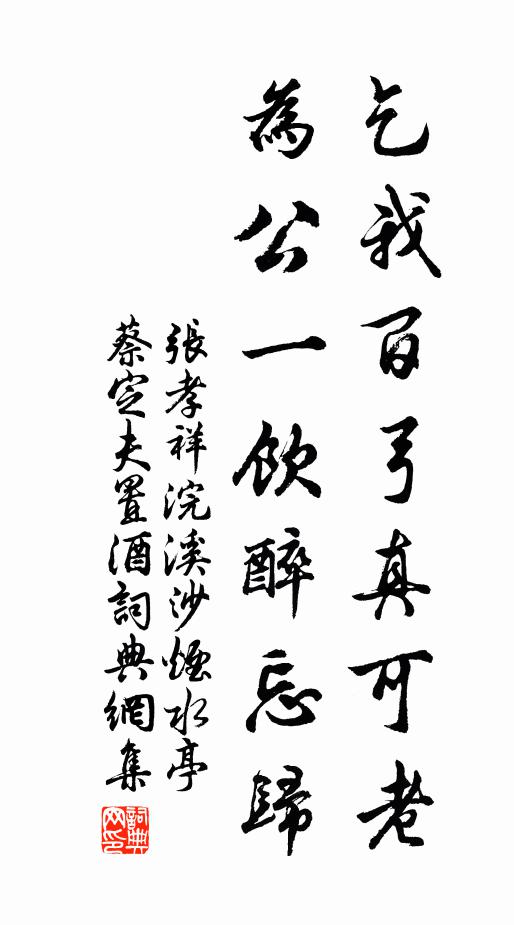 乞我百弓真可老
為公一飲醉忘歸
張孝祥浣溪沙煙水亭
蔡定夫置酒詞典網集
詞典网印